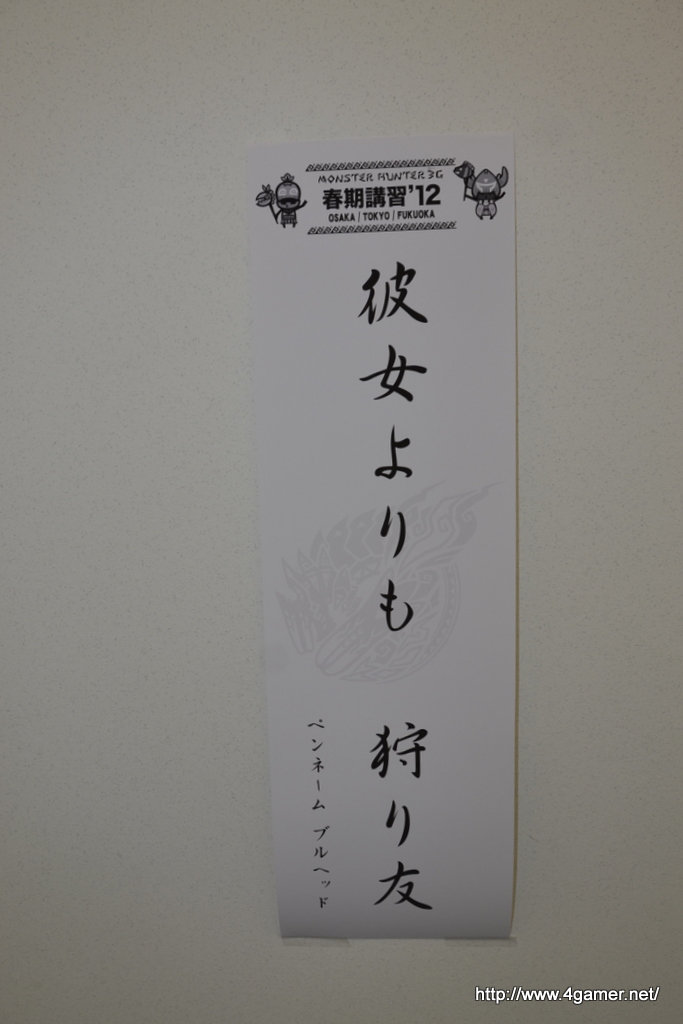 MONSTER HUNTER 3G
春期講習'12
OSAKA / TOKYO / FUKUOKA
彼女よりも 狩り友
ペンネーム ブルヘッド
http://www.4gamer.net/